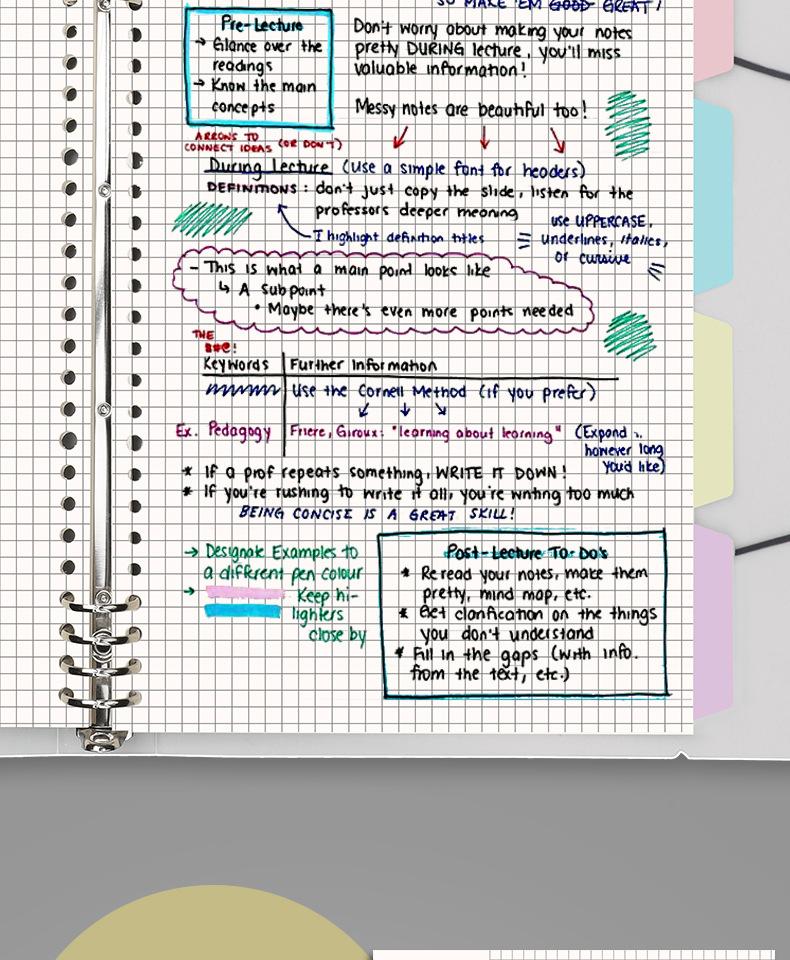 SO MAKE 'EM GOOD GREAT!
Pre-Lecture
→ Glance over the
readings
→ Know the main
concepts
Don't worry about making your notes
pretty DURING lecture, you'll miss
valuable information!
Messy notes are beautiful too!
ARROWS TO
CONNECT IDEAS (OR DON'T)
During lecture (use a simple font for headers)
DEFINITIONS: don't just copy the slide, listen for the
professors deeper meaning
I highlight definition titles
use UPPERCASE,
underlines, italics,
or cursive
- This is what a main point looks like
↳ A Subpoint
• Maybe there's even more points needed
THE
Keywords | Further Information
Use the Cornell Method (if you prefer)
Ex. Pedagogy | Friere, Giroux: "learning about learning"
(Expand
however long
you'd like)
* If a prof repeats something, WRITE IT DOWN!
* If you're rushing to write it all, you're writing too much
BEING CONCISE IS A GREAT SKILL!
→ Designate Examples to
a different pen colour
→ Keep hi-
lighters
close by
Post-Lecture To-Do's
* Reread your notes, make them
pretty, mind map, etc.
* Get clarification on the things
you don't understand
* Fill in the gaps (with info.
from the text, etc.)